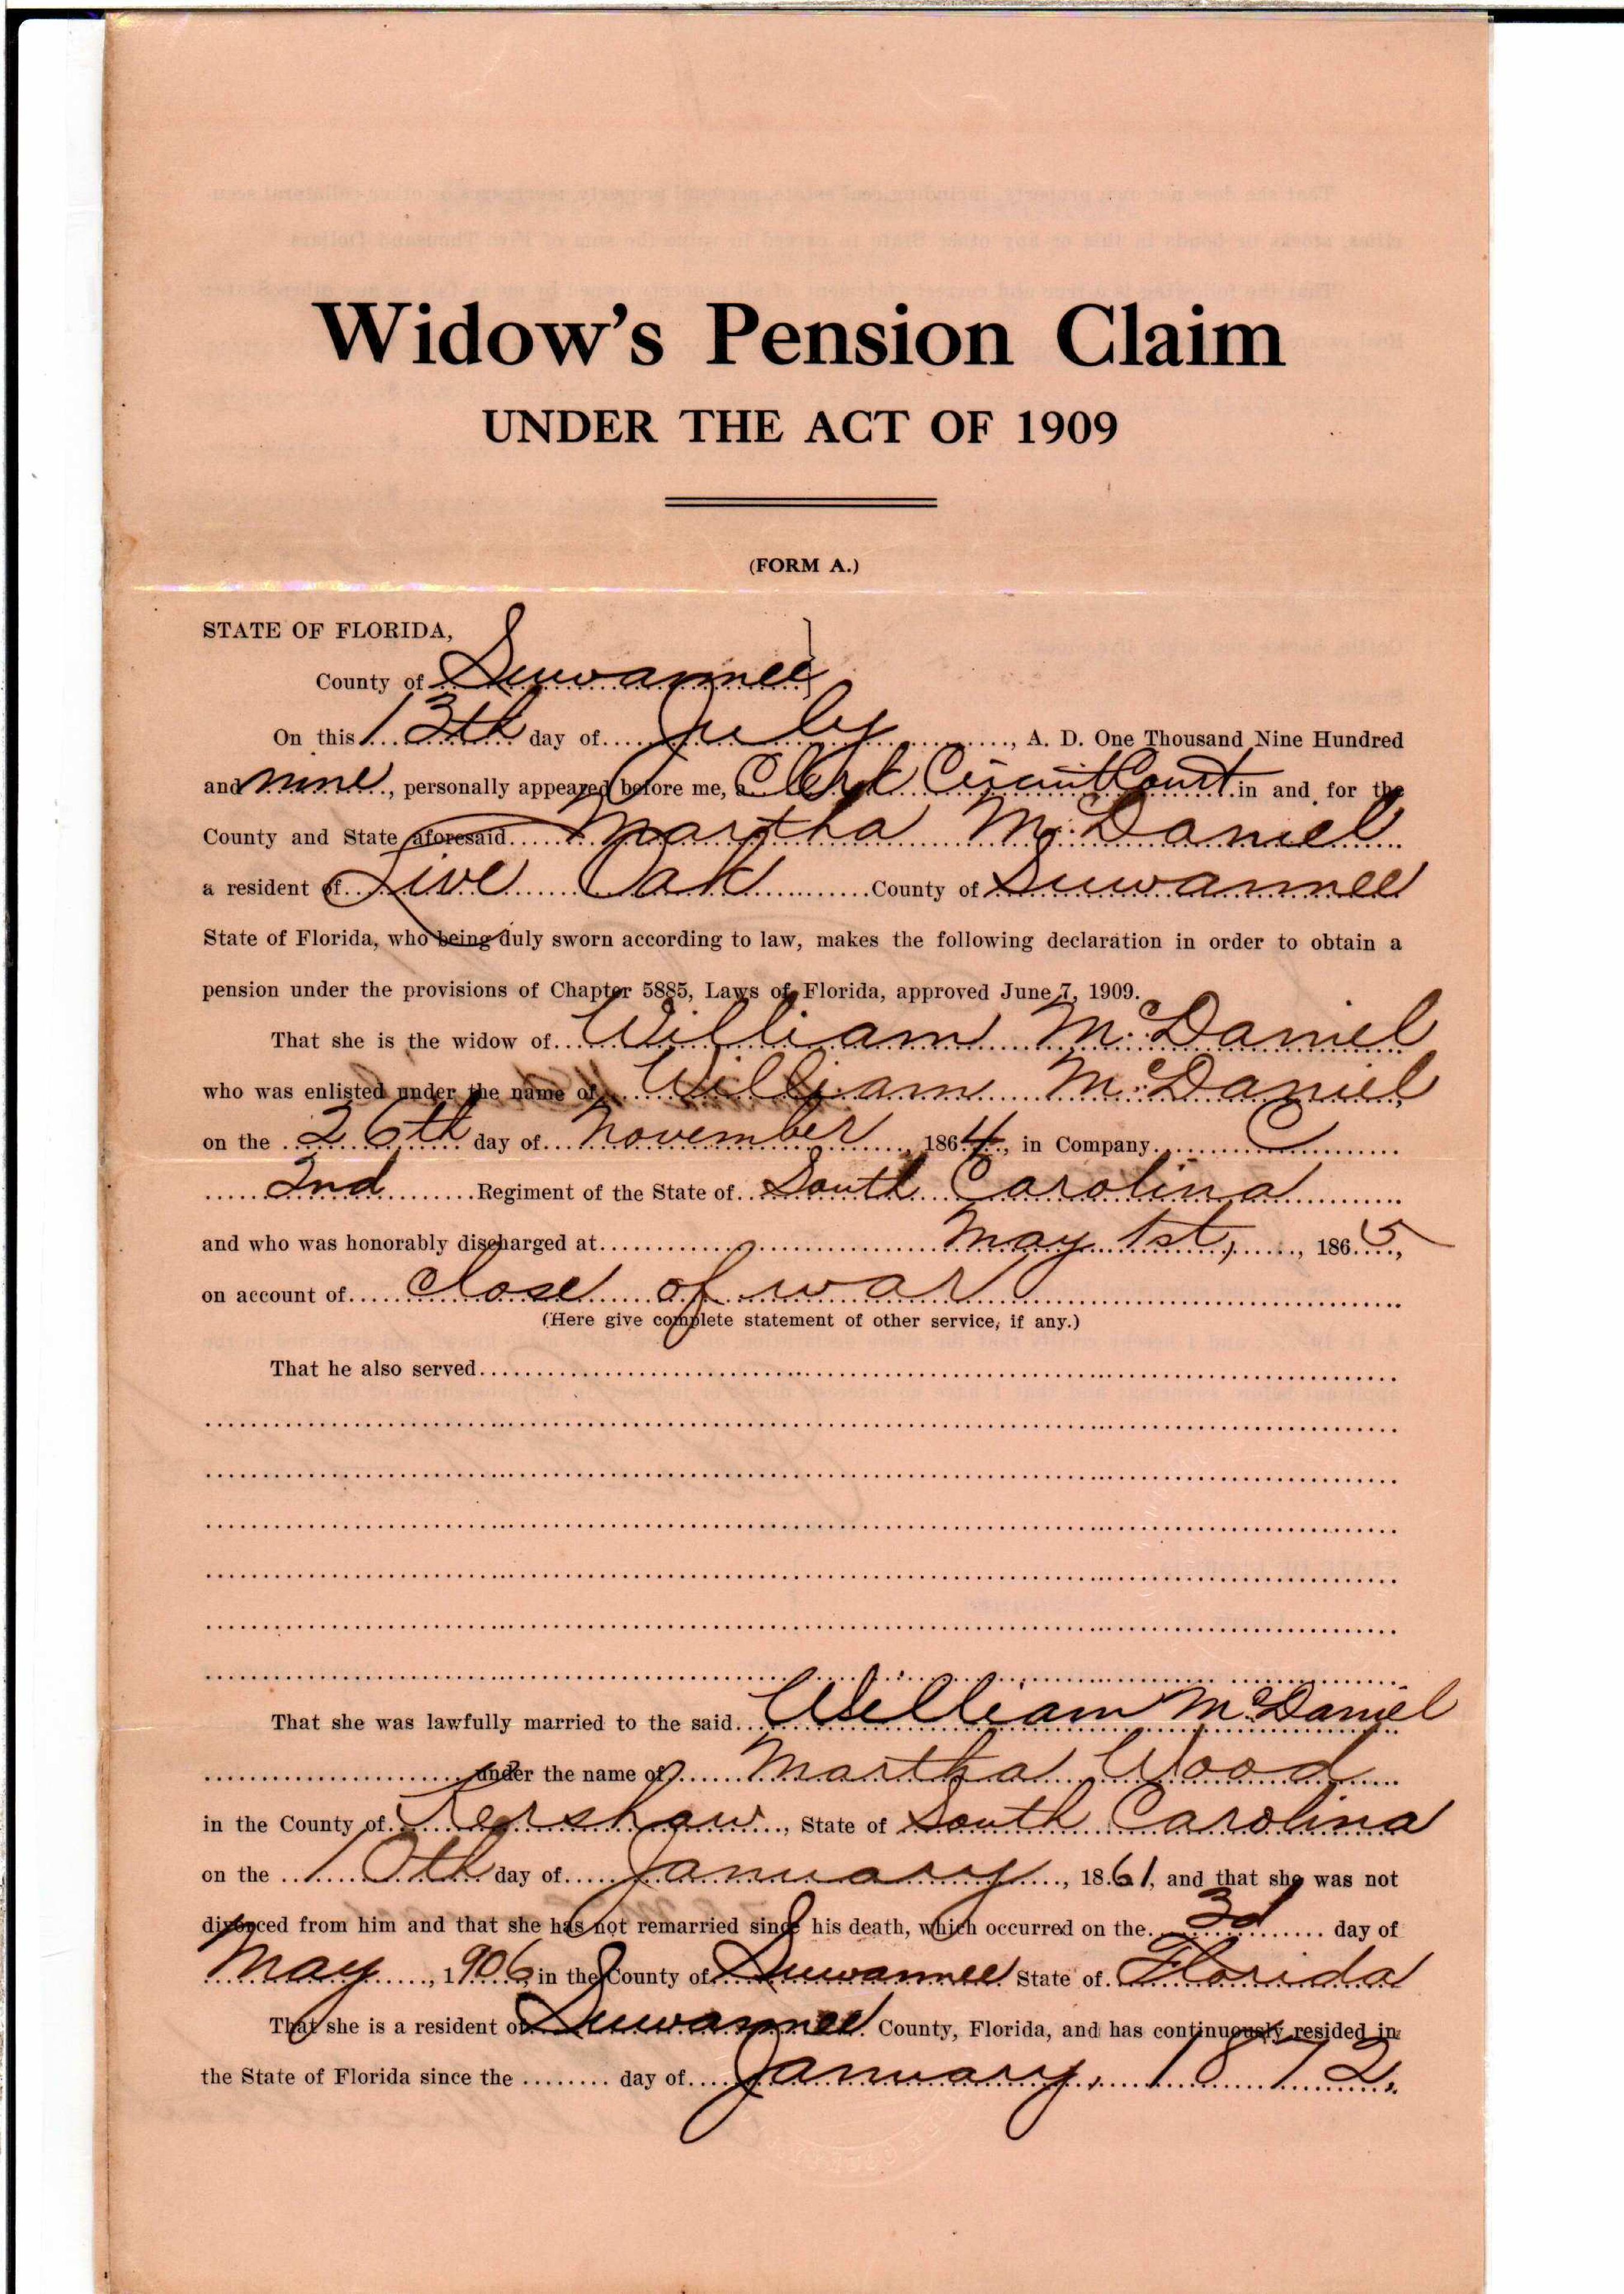 Widow's Pension Claim
UNDER THE ACT OF 1909
(FORM A.)
STATE OF FLORIDA,
County of Suwannee
On this 13th day of July, A. D. One Thousand Nine Hundred
and nine, personally appeared before me, a Clerk Circuit Court in and for the
County and State aforesaid Martha McDaniel
a resident of Live Oak County of Suwannee
State of Florida, who being duly sworn according to law, makes the following declaration in order to obtain a
pension under the provisions of Chapter 5885, Laws of Florida, approved June 7, 1909.
That she is the widow of William McDaniel
who was enlisted under the name of William McDaniel
on the 26th day of November, 1864, in Company C
2nd Regiment of the State of South Carolina
and who was honorably discharged at May 1st, 1865,
on account of close of war
(Here give complete statement of other service, if any.)
That he also served
That she was lawfully married to the said William McDaniel
under the name of Martha Wood
in the County of Kershaw, State of South Carolina
on the 10th day of January, 1861, and that she was not
divorced from him and that she has not remarried since his death, which occurred on the 3d day of
May, 1906, in the County of Suwannee State of Florida
That she is a resident of Suwannee County, Florida, and has continuously resided in
the State of Florida since the ........ day of January, 1872.